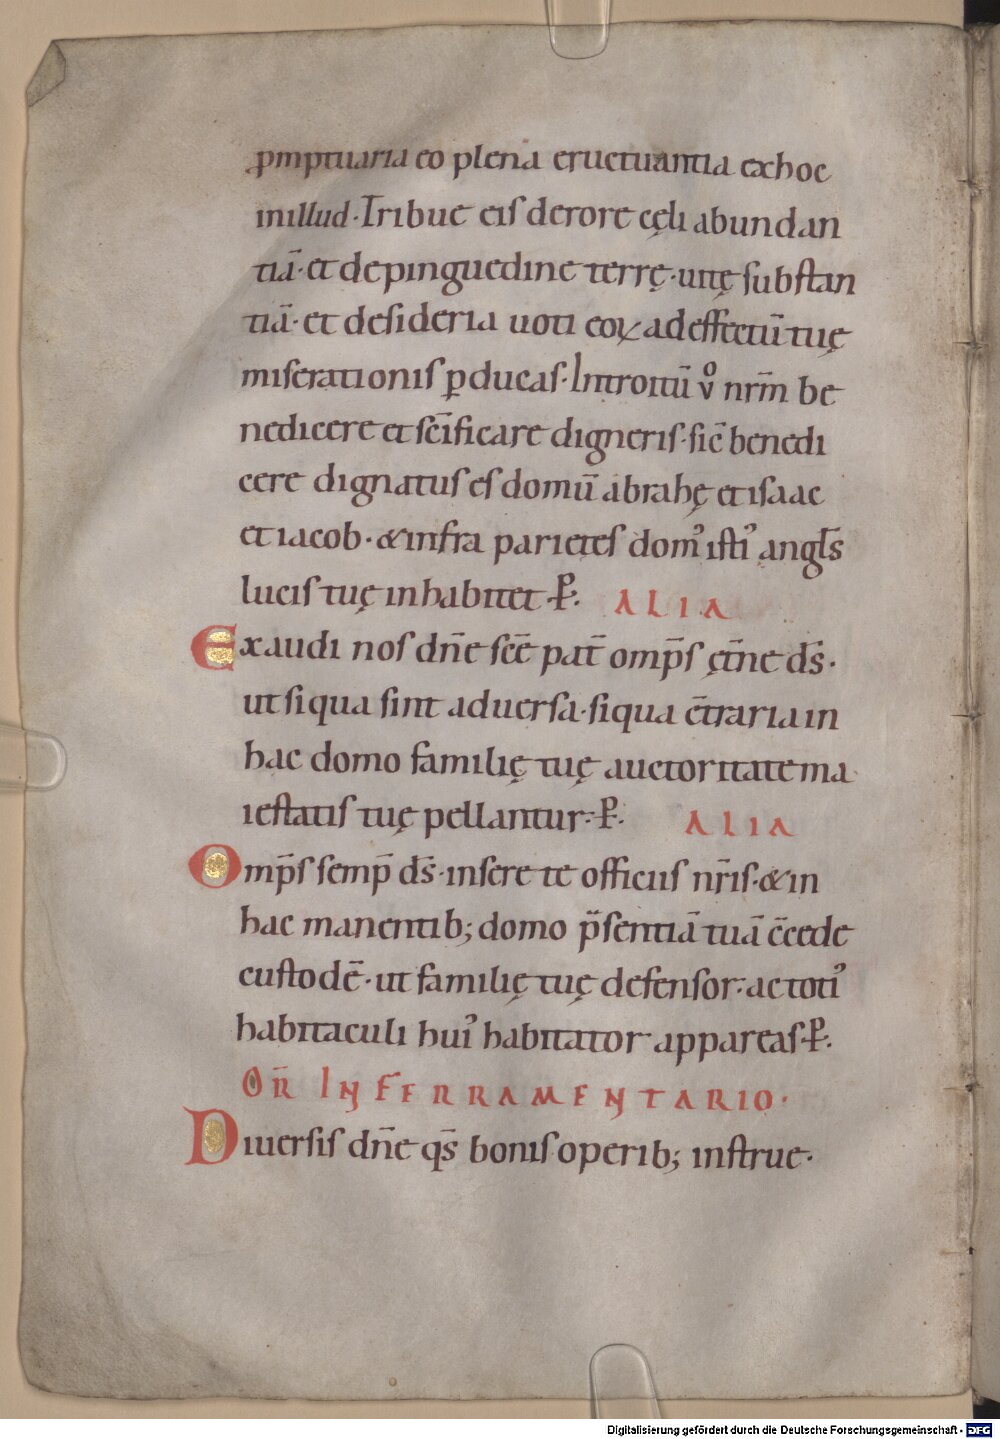 ꝓmptuaria eo plena eructuantia exhoc
inillud· Tribue eis derore cęli abundan
tiā· et depinguedine terrę· uitę substan
tiā· et desideria uoti eoꝝ adeffectū tuę
miserationis ꝑducas· Introitū v̊ nrm̄ be
nedicere et sc̄ificare digneris· sic̄ benedi
cere dignatus es domū abrahę et isaac
et iacob· & infra parietes domꝰ istiꝰ angls̄
lucis tuę inhabitet· P̱·
ALIA
Exaudi nos dn̄e sc̄e pat̄ omp̄s ęt̄ne ds̄·
ut siqua sint aduersa· siqua c̄traria in
hac domo familię tuę auctoritate ma
iestatis tuę pellantur· P̱·
ALIA
Omp̄s semp̄ ds̄· insere te officiis nr̄is· & in
hac manentib; domo p̄sentiā tuā c̄cede
custodē· ut familię tuę defensor· ac totiꝰ
habitaculi huiꝰ habitator appareas· P̱·
OR̄ IN FERRAMENTARIO·
Diuersis dn̄e qs̄ bonis operib; instrue·
Digitalisierung gefördert durch die Deutsche Forschungsgemeinschaft - DFG